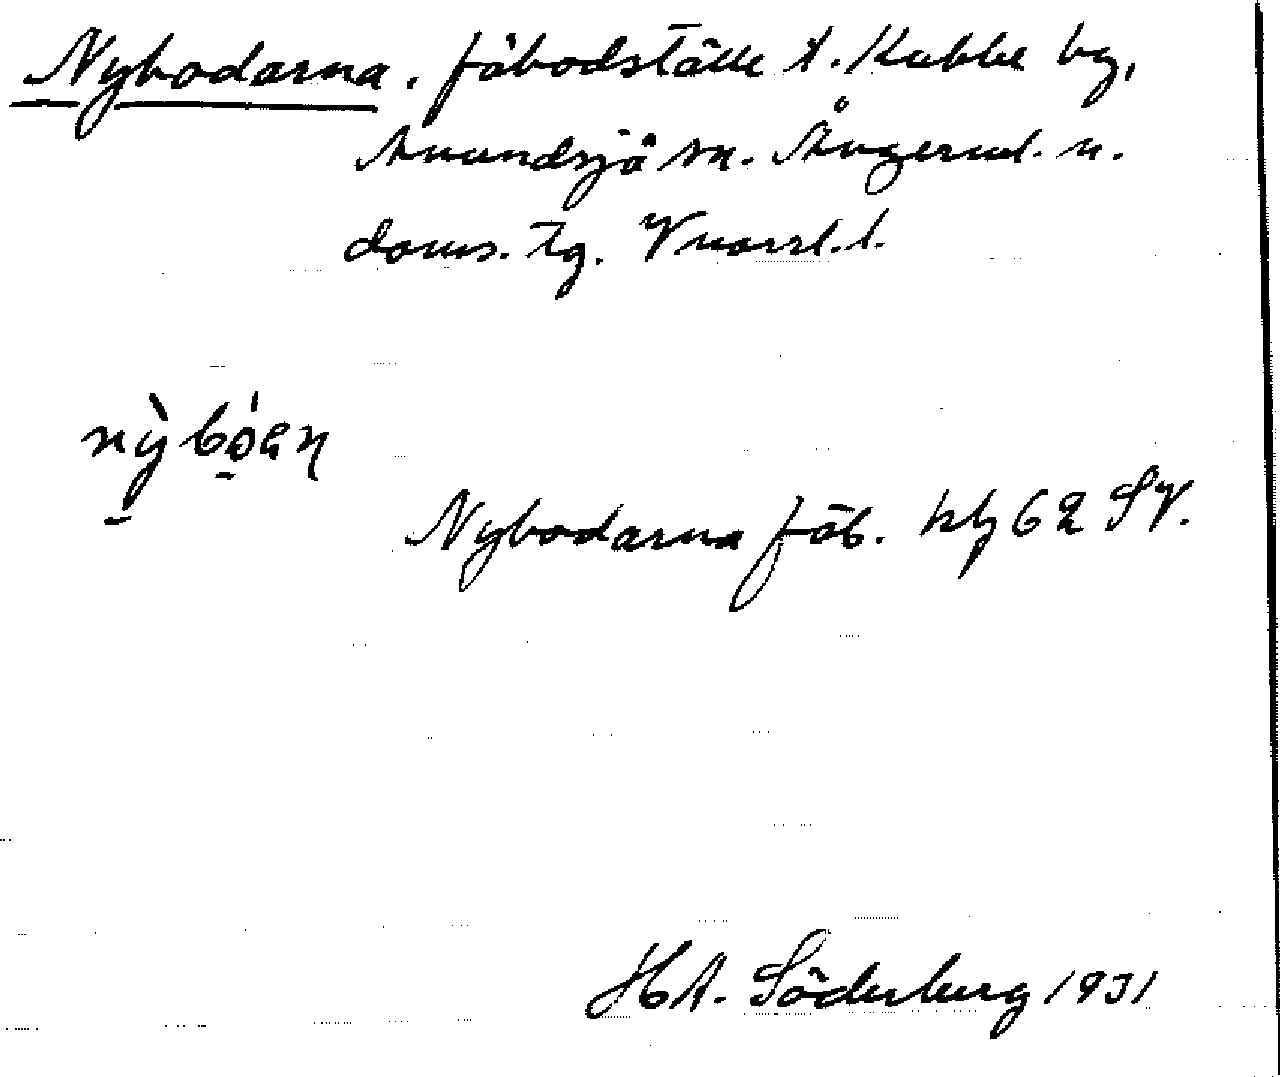 Nybodarna. fäbodställe t. Kubbe by,
Anundsjö sn. Ångerml. n.
doms. tg. Vnorrl. l.
nỳbo̤'en
Nybodarna fäb. kbl 62 SV.
H A. Söderberg 1931